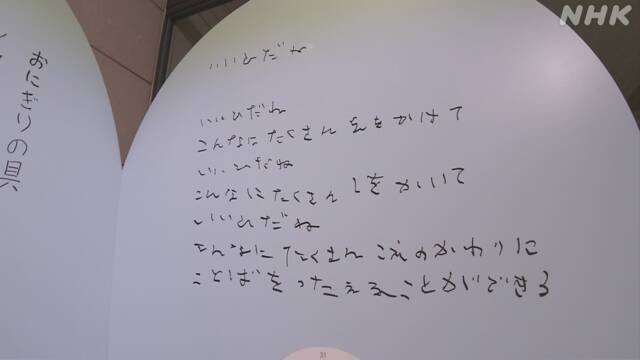 NHK
いいひだね
いいひだね
こんなにたくさん かけて
いいひだね
こんなにたくさん しをかいて
いいひだね
こんなにたくさん こえのかわりに
ことばをつたえることができる
31
おにぎりの具